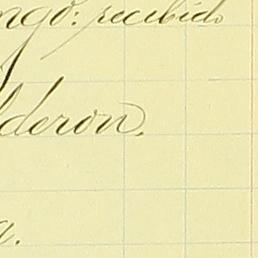 ngo: recibido
lderon.
a.